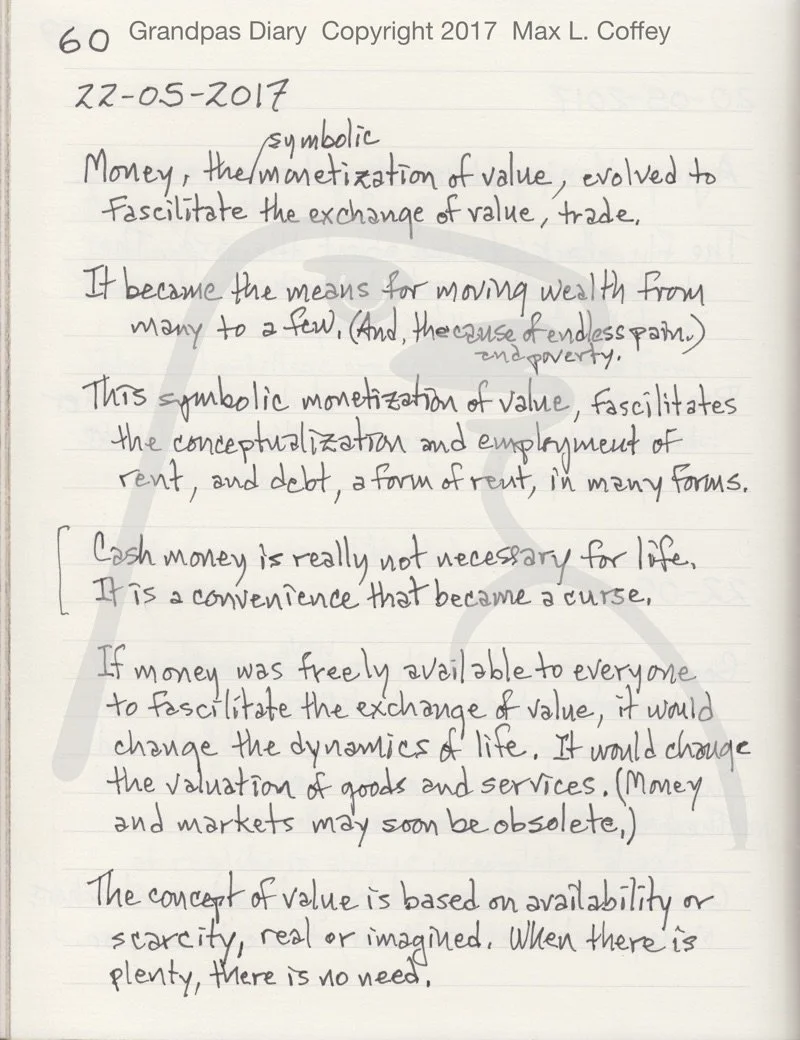 60 Grandpas Diary Copyright 2017 Max L. Coffey
22-05-2017
symbolic
Money, the/monetization of value, evolved to
fascilitate the exchange of value, trade.
It became the means for moving wealth from
many to a few. (And, the cause of endless pain.)
and poverty.
This symbolic monetization of value, fascilitates
the conceptualization and employment of
rent, and debt, a form of rent, in many forms.
Cash money is really not necessary for life.
It is a convenience that became a curse.
If money was freely available to everyone
to fascilitate the exchange of value, it would
change the dynamics of life. It would change
the valuation of goods and services. (Money
and markets may soon be obsolete.)
The concept of value is based on availability or
scarcity, real or imagined. When there is
plenty, there is no need.